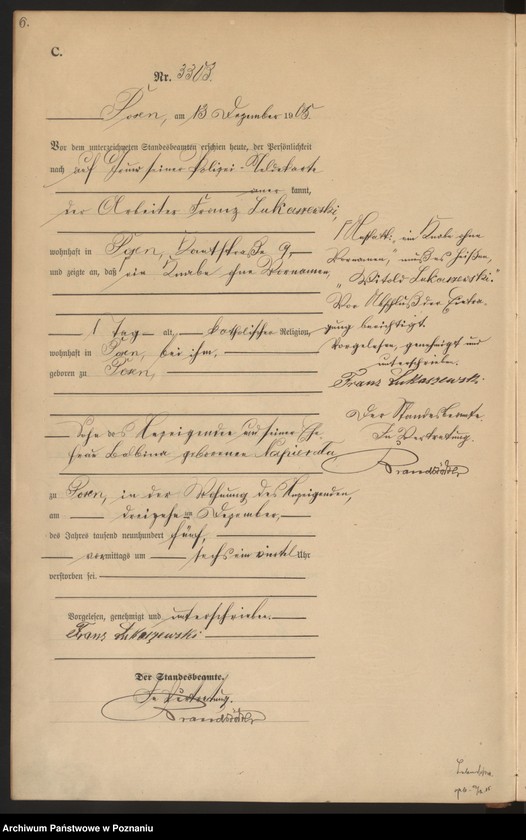 6.
C.
Nr. 3303.
Posen, am 13 Dezember 1905.
Vor dem unterzeichneten Standesbeamten erschien heute, der Persönlichkeit
nach auf Grund seiner Polizei-Meldekarte
aner kannt,
der Arbeiter Franz Lukaszewski,
wohnhaft in Posen, 9,
und zeigte an, daß ein Knabe ohne Vornamen,
1 Tag alt, katholischer Religion,
wohnhaft in Posen, bei ihm,
geboren zu Posen,
Sohn des Anzeigenden und seiner Ehe-
frau Balbina geborenen Napierala
zu Posen, in der Wohnung des Anzeigenden,
am dreizehn ten Dezember
des Jahres tausend neunhundert fünf,
mittags um sechs ein viertel Uhr
verstorben sei.
Vorgelesen, genehmigt und unterschrieben.
Franz Łukaszewski
Der Standesbeamte.
In Vertretung.
"Anstatt: "ein Knabe ohne
Vornamen", muß es heißen,
"Witold Lukaszewski."
Vor Abschluß der Eintra-
gung berichtigt.
Vorgelesen, genehmigt und
unterschrieben.
Franz Łukaszewski.
Der Standesbeamte.
In Vertretung.
Archiwum Państwowe w Poznaniu